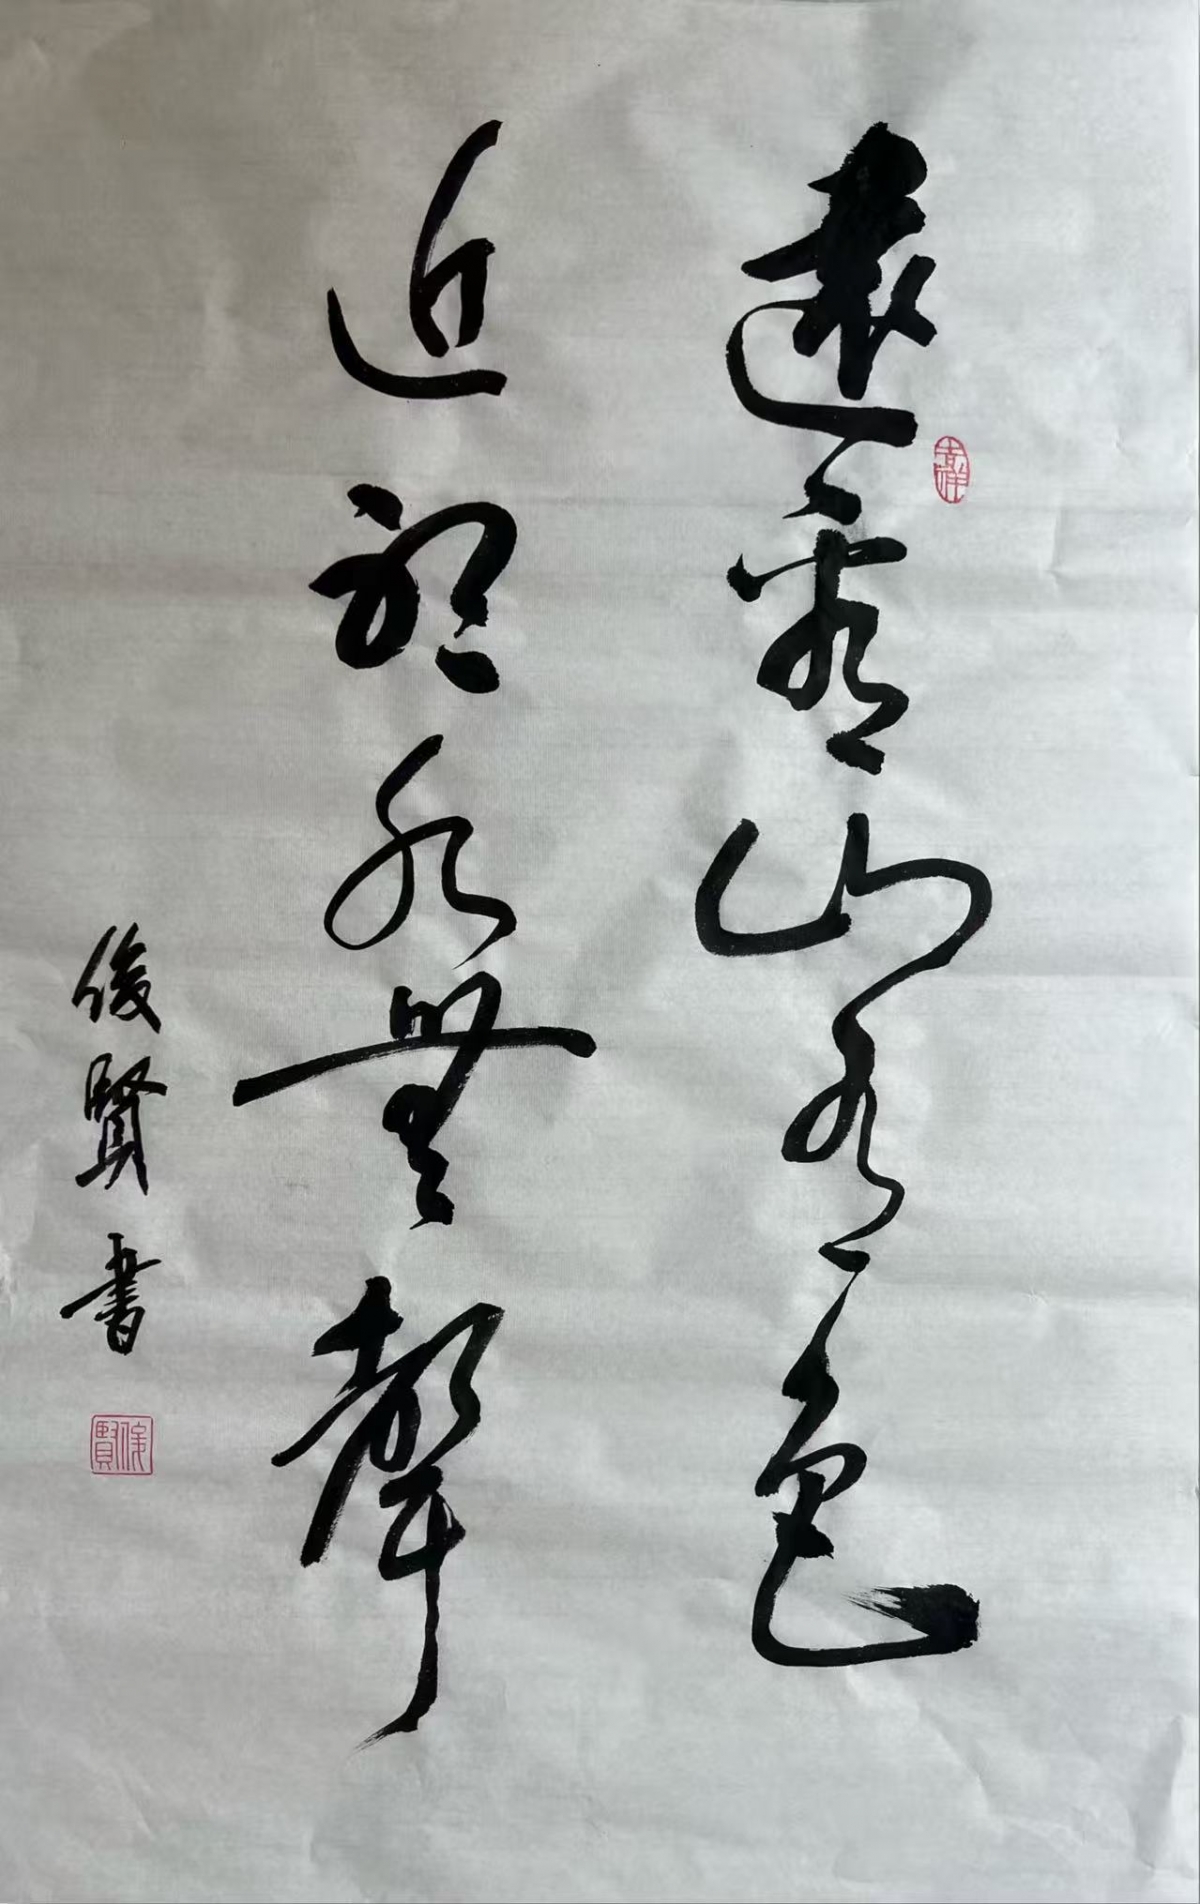 遠看山有色
近聽水無聲
俊賢書
吉祥
俊賢